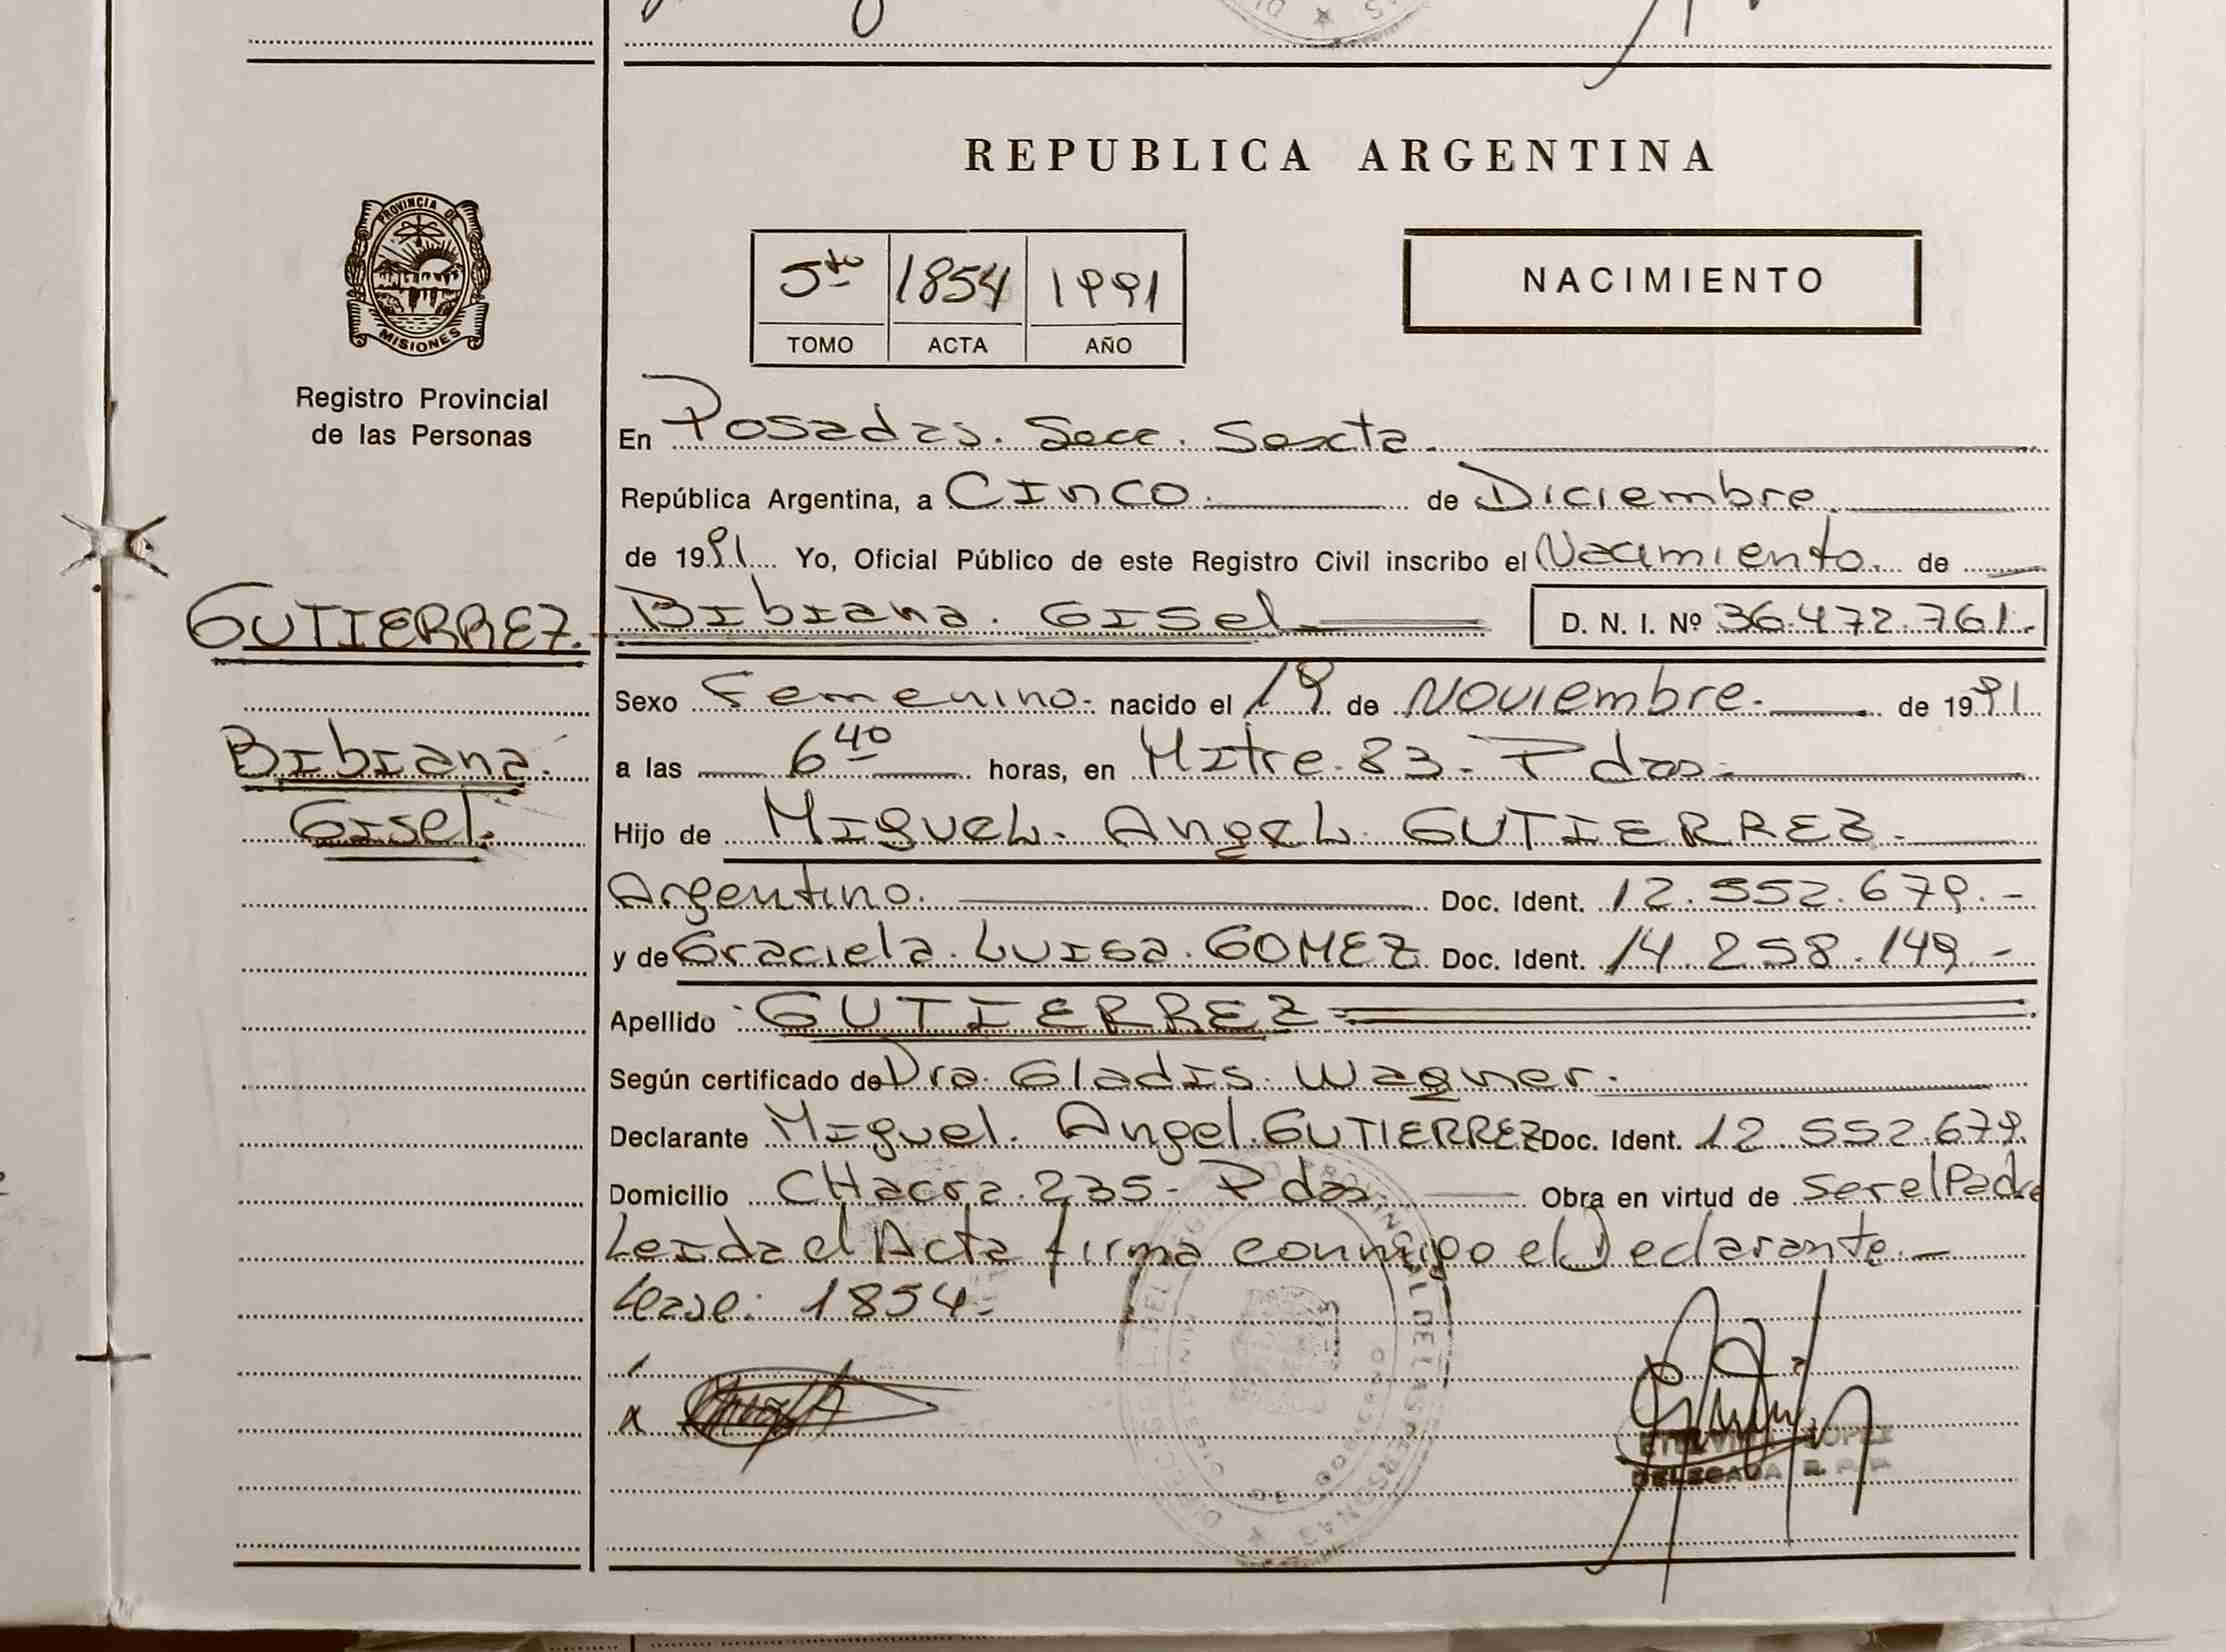 REPUBLICA ARGENTINA
PROVINCIA DE
MISIONES
Registro Provincial
de las Personas
5to 1854 1991
TOMO ACTA AÑO
NACIMIENTO
En Posadas. Secc. Sexta.
República Argentina, a Cinco. de Diciembre.
de 1991 Yo, Oficial Público de este Registro Civil inscribo el Nacimiento. de
GUTIERREZ. Bibiana. Gisel D. N. I. Nº 36.472.761.
Sexo Femenino. nacido el 19 de Noviembre. de 1991.
Bibiana.
a las 6 40 horas, en Mitre. 83. Pdas.
Gisel.
Hijo de Miguel. Angel. GUTIERREZ.
Argentino. Doc. Ident. 12.552.679.-
y de Graciela. Luisa. GOMEZ Doc. Ident. 14.258.149.-
Apellido GUTIERREZ
Según certificado de Dra. Gladis. Wagner.
Declarante Miguel. Angel. GUTIERREZ Doc. Ident. 12.552.679.
Domicilio CHacra. 235. Pdas. Obra en virtud de ser el Padre
Leida el Acta firma conmigo el Declarante.-
Lease: 1854.-
x
LOPEZ
DELEGADA R. P. P.